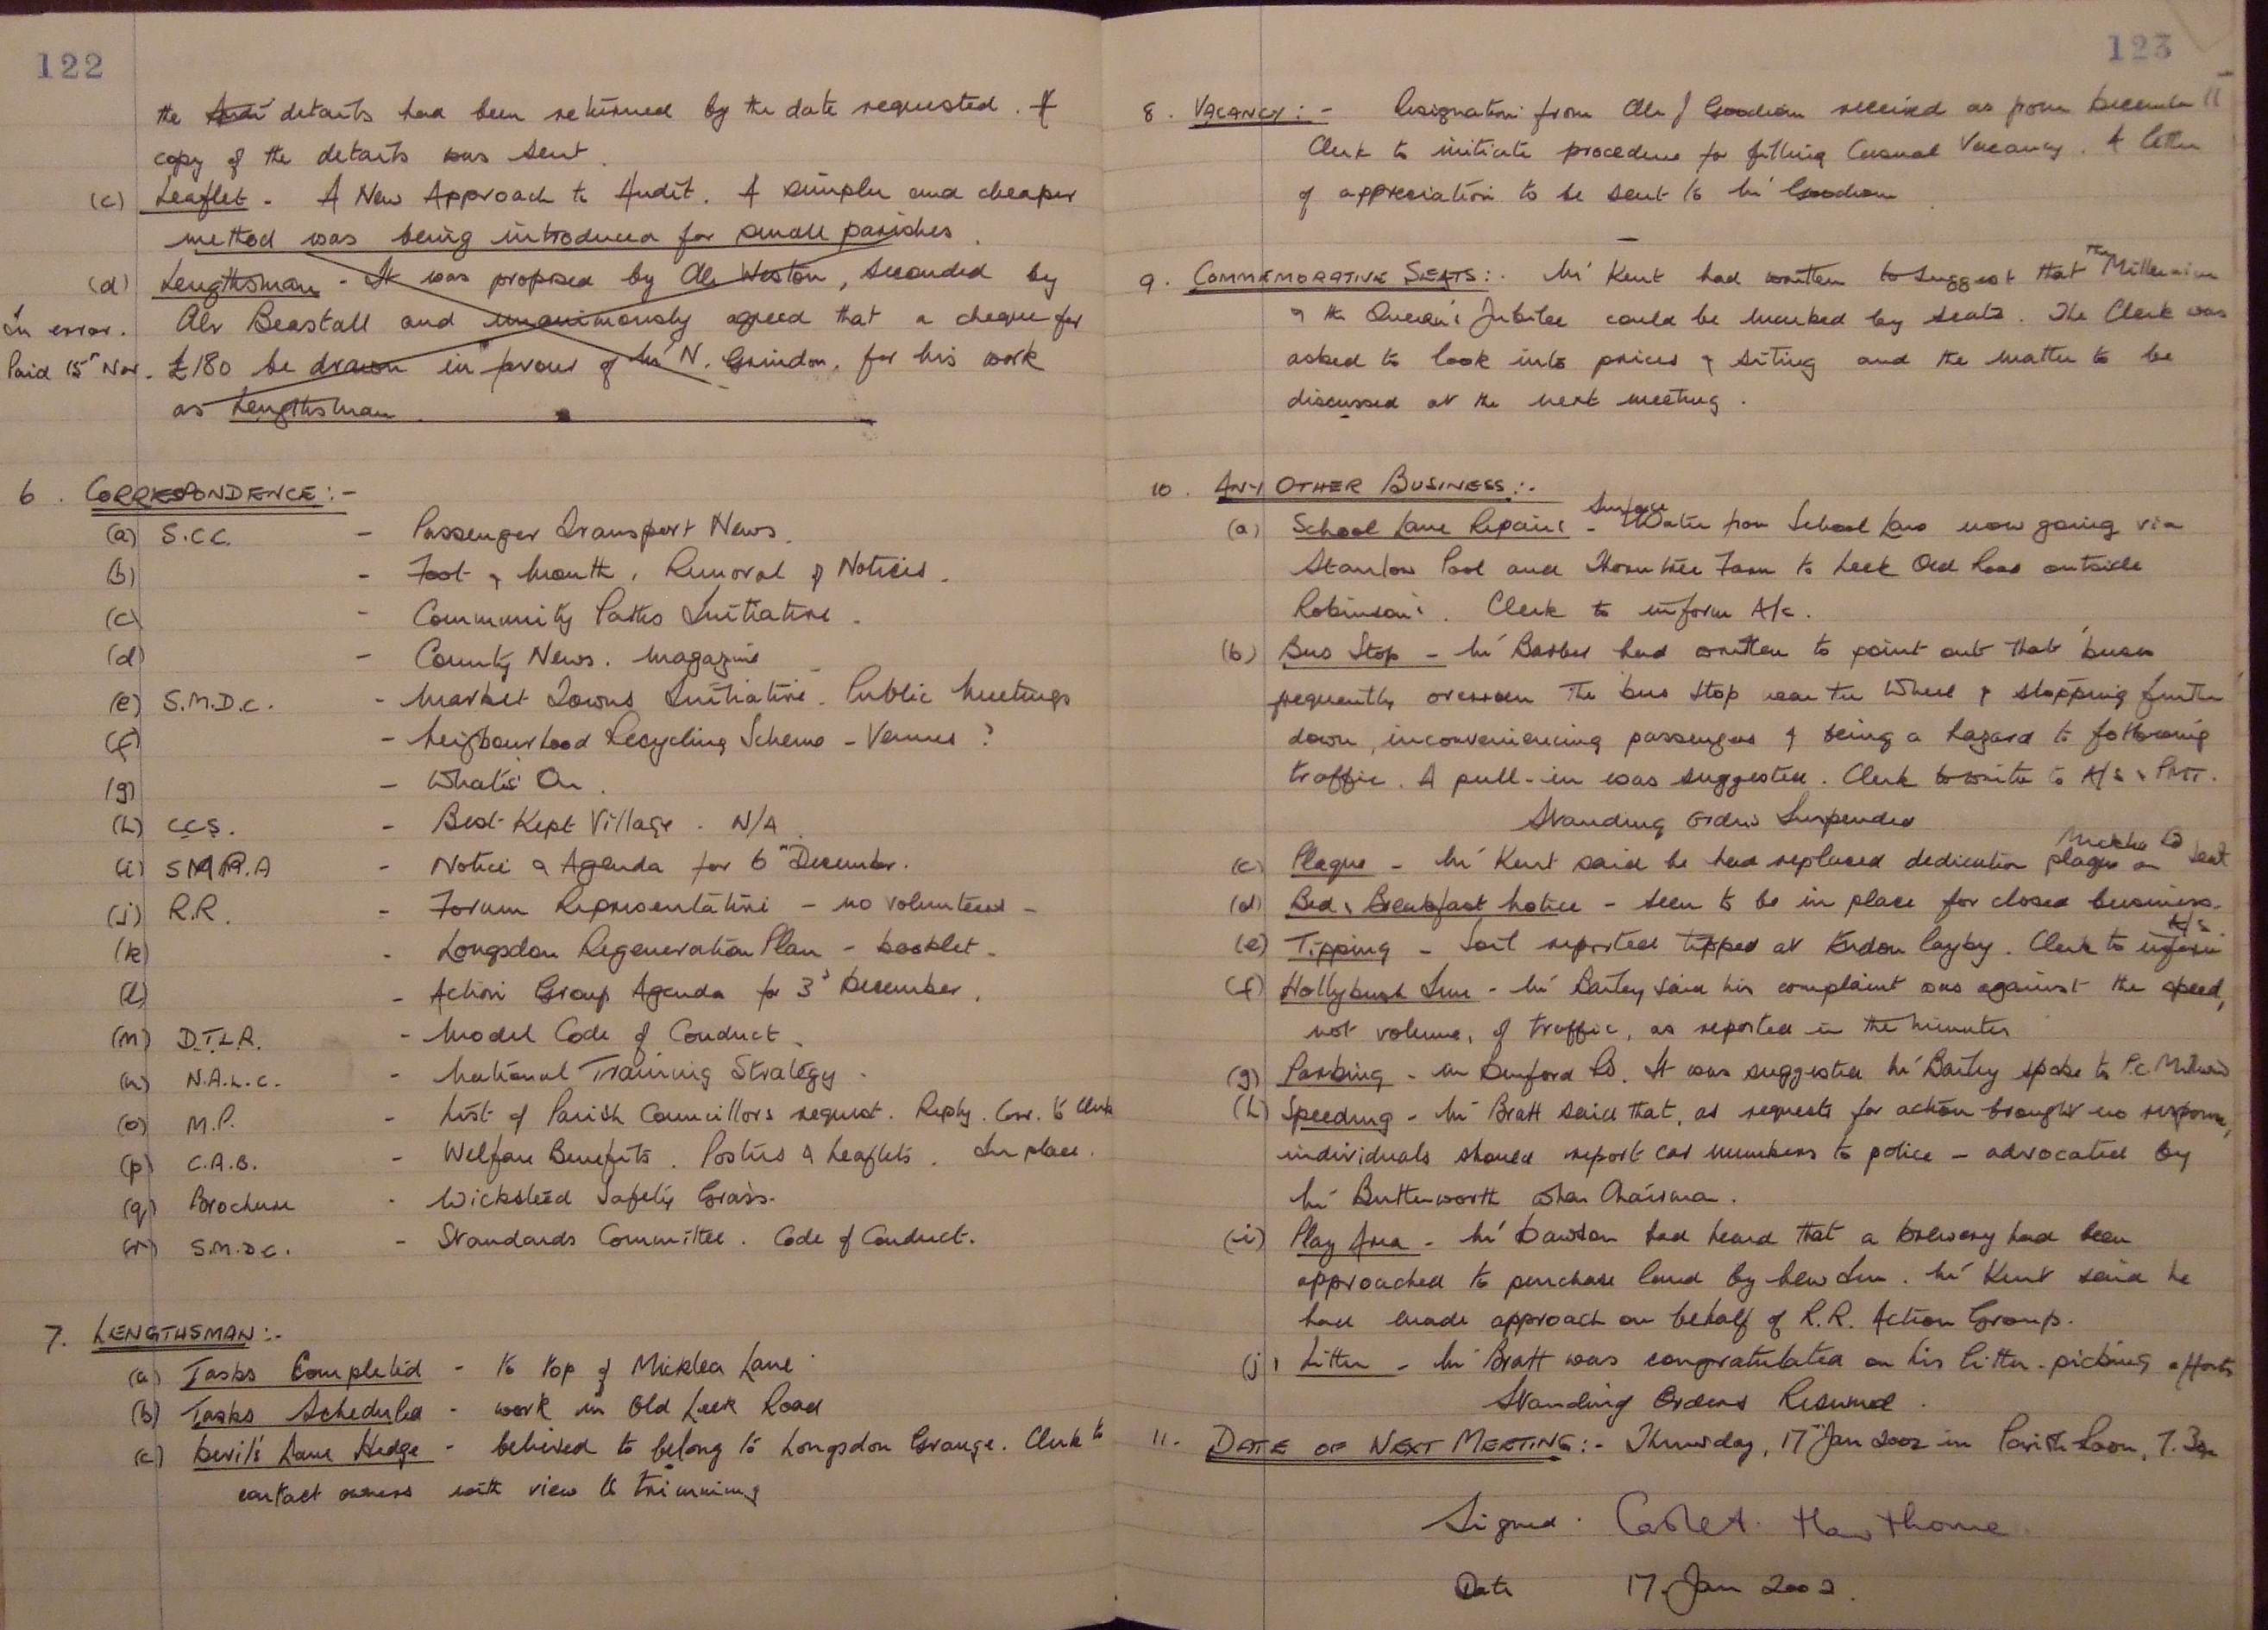 122
the details had been returned by the date requested. A
copy of the details was sent.
(c) Leaflet - A New Approach to Audit. A simpler and cheaper
method was being introduced for small parishes.
(d) Lengthsman - It was proposed by Clr Weston, seconded by
In error. Clr Beastall and unanimously agreed that a cheque for
Paid 15th Nov. £180 be drawn in favour of Mr N. Grindon, for his work
as Lengthsman.
6. CORRESPONDENCE:-
(a) S.C.C. - Passenger Transport News.
(b) - Foot & Mouth, Removal of Notices.
(c) - Community Paths Initiative.
(d) - County News. Magazine
(e) S.M.D.C. - Market Towns Initiative. Public Meetings
(f) - Neigbourhood Recycling Scheme - Venues?
(g) - What's On.
(h) C.C.S. - Best Kept Village. N/A.
(i) S.M.P.A - Notice & Agenda for 6th December.
(j) R.R. - Forum Representative - no volunteers -
(k) - Longsdon Regeneration Plan - booklet -
(l) - Action Group Agenda for 3rd December.
(m) D.T.L.R. - Model Code of Conduct.
(n) N.A.L.C. - National Training Strategy.
(o) M.P. - List of Parish Councillors request. Reply. Corr. to Clerk
(p) C.A.B. - Welfare Benefits. Posters & Leaflets. In place.
(q) Brochure - Wicksteed Safety Grass.
(r) S.M.D.C. - Standards Committee. Code of Conduct.
7. LENGTHSMAN:-
(a) Tasks Completed - to top of Micklea Lane
(b) Tasks Scheduled - work in Old Leek Road
(c) Devil's Lane Hedge - believed to belong to Longsdon Grange. Clerk to
contact owners with view to trimming
123
8. VACANCY:- Resignation from Clr J Goodian received as from December 11
Clerk to initiate procedure for filling Casual Vacancy. A letter
of appreciation to be sent to Mr
9. COMMEMORATIVE SEATS:- Mr Kent had written to suggest that the Millennium
& the Queen's Jubilee could be marked by seats. The Clerk was
asked to look into prices & siting and the matter to be
discussed at the next meeting.
10. ANY OTHER BUSINESS:-
(a) School Lane Repairs - Surface Water from School Lane now going via
Stanlow Pool and Thorntree Farm to Leek Old Road outside
Robinson's. Clerk to inform H/S.
(b) Bus Stop - Mr Barber had written to point out that buses
frequently overran the bus stop near the Wheel & stopping further
down, inconveniencing passengers & being a hazard to following
traffic. A pull-in was suggested. Clerk to write to H/S & PMT.
Standing Orders Suspended
(c) Plaque - Mr Kent said he had replaced dedication plaque on Micklea Rd Seat
(d) Bed & Breakfast Notice - seen to be in place for closed business.
(e) Tipping - Soil reported tipped at Endon layby. Clerk to inform H/S
(f) Hollybush Lane - Mr Bailey said his complaint was against the speed,
not volume, of traffic, as reported in the minutes
(g) Parking - in Dunford Rd. It was suggested Mr Bailey spoke to P.C.
(h) Speeding - Mr Bratt said that, as requests for action brought no response,
individuals should report car numbers to police - advocated by
Mr Butterworth when Chairman.
(i) Play Area - Mr Dawson had heard that a brewery had been
approached to purchase land by New Inn. Mr Kent said he
had made approach on behalf of R.R. Action Group.
(j) Litter - Mr Bratt was congratulated on his litter-picking efforts
Standing Orders Resumed.
11. DATE OF NEXT MEETING:- Thursday, 17th Jan 2002 in Parish Room, 7.30
Signed. Hawthorne
Date 17 Jan 2002.